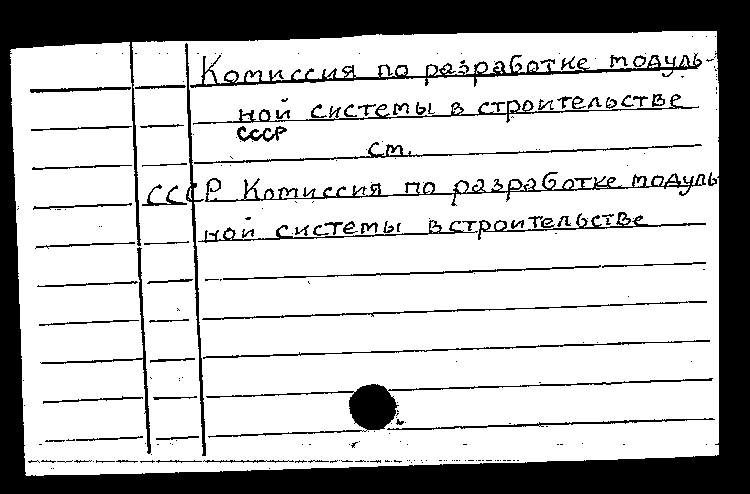 Комиссия по разработке модуль-
ной системы в строительстве
СССР
см.
СССР. Комиссия по разработке модуль
ной системы в строительстве